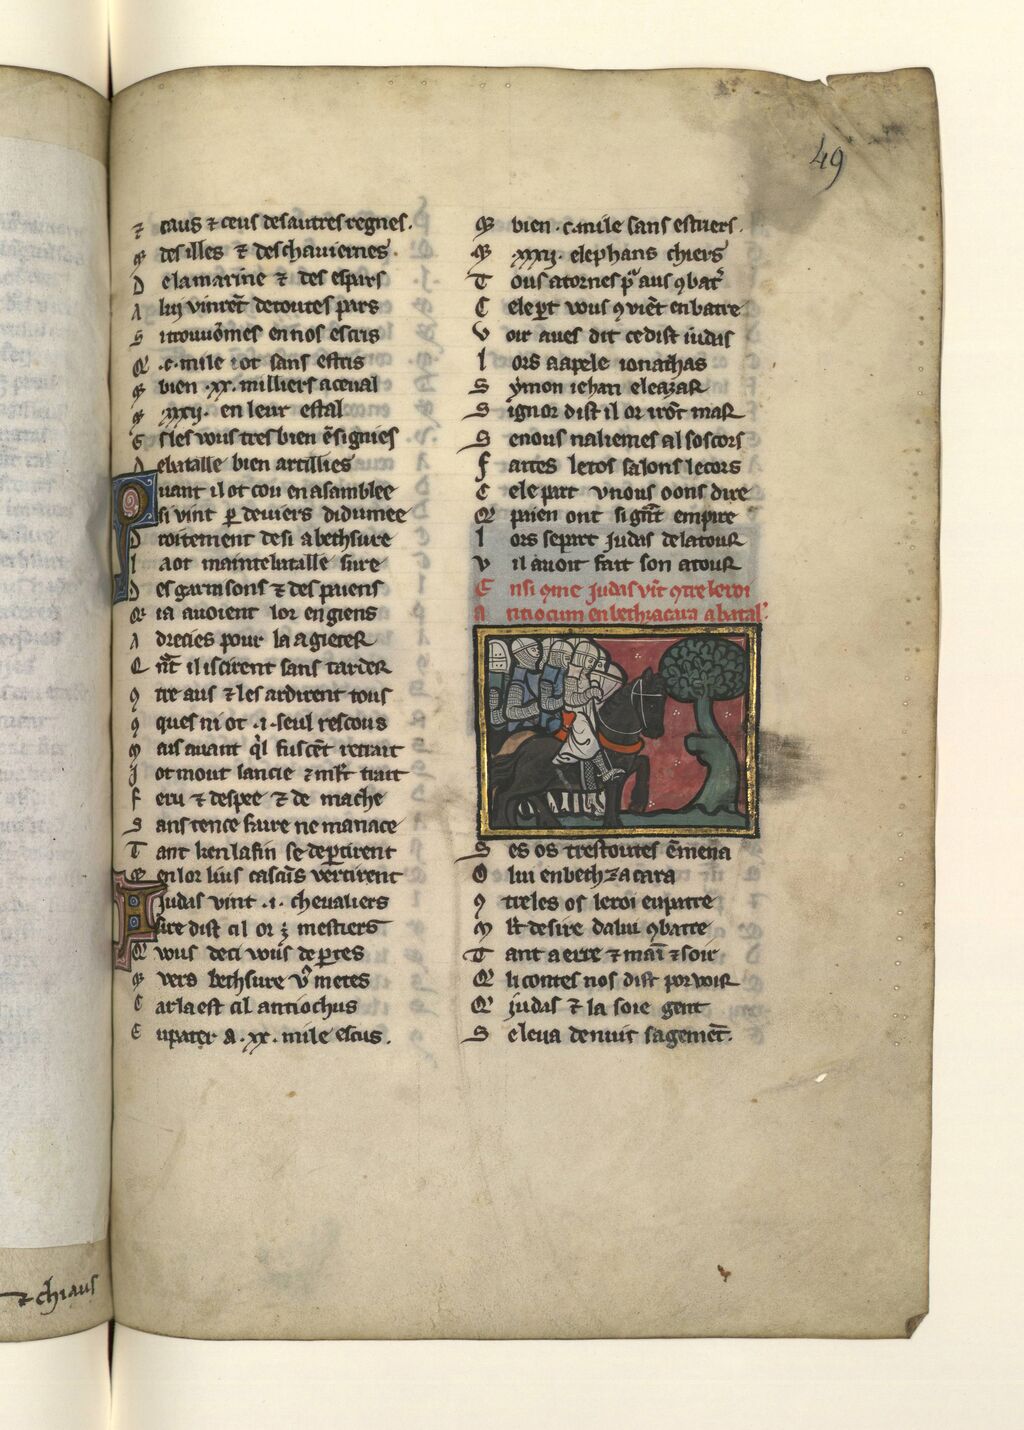 49
⁊ ciaus ⁊ ceus desautres regnes.
Q̄ des illes ⁊ deschauiernes.
D elamarine ⁊ des espars
A lui vinrēt detoutes pars
S itrouuōmes ennos escris
Q̄ .c. mile i ot sans estris
⁊ bien .xx. milliers aceual
⁊ .xxxij. en leur estal
E sles vous tresbien ēsignies
D ebatalle bien artillies
Q uant il ot cou enasamblee
si vint p̱ deuiers didumee
D roitement desi abethsure
L a ot mainte batalle sure
D es garnisons ⁊ des paiens
Q̄ ia auoient lor engiens
A drecies pour la agieter
C ōt̄ il iscirent sans tarder
ꝯ tre aus ⁊ les ardirent tous
ꝯ ques ni ot .i. seul rescous
M ais auant q̓l fuscēt retrait
I ot mout lancie ⁊ mlt̄ trait
F eru ⁊ despee ⁊ de mache
S ans tence faire ne manace
T ant kenlafin se dep̱tirent
⁊ enlor lius cascūs vertirent
A judas vint .i. cheualiers
sire dist cil or ē mestiers
Q̄ vous deci vous dep̱tes
⁊ vers bethsure v̄ metes
C ar la est cil antiochus
E upater a .xx. mile escus.
⁊ bien .c. mile sans estriers.
⁊ .xxxij. elephans chiers
T ous atornes pͬ aus ꝯbatͬ
C ele p̱t vous ꝯuiēt enbatre
V oir aues dit cedist iudas
L ors aapele ionathas
S ymon iehan eleazar
S ignor dist il or irōt mar
S enous naliemes al soscors
F aites letos salons lecors
C ele part v nous oons dire
Q̄ paien ont si gn̄t empire
L ors separt judas delatour
V il auoit fait son atour
E nsi ꝯme judas vīt ꝯtre leroi
A ntiocum enbethzacara abatal̓.
S es os trestoutes ēmena
O lui enbethzacara
ꝯ tre les os leroi eupatre
M lt̄ desire dalui ꝯbatre
T ant a erre ⁊ maī ⁊ soir
Q̄ li contes nos dist por voir
Q̄ judas ⁊ la soie gent
S eleua denuit sagemēt.
⁊ chiaus